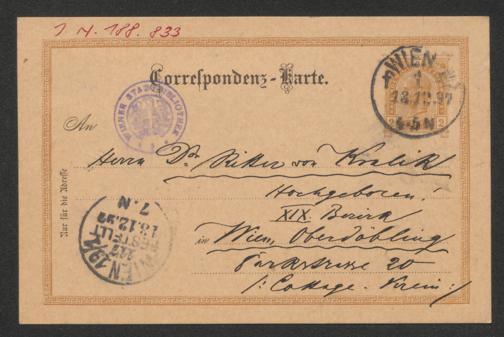 J. N. 188.833
Correspondenz-Karte.
WIEN
1
13.12.97
4-5N
WIENER STADTBIBLIOTHEK
An
Herrn Dr. Ritter von Kralik
Hochgeboren!
XIX. Bezirk
in Wien, Oberdöbling
Parkstrasse 20
/: Cottage-Verein :/
Nur für die Adresse
WIEN 19/1
BESTELLT
13.12.97
7. N